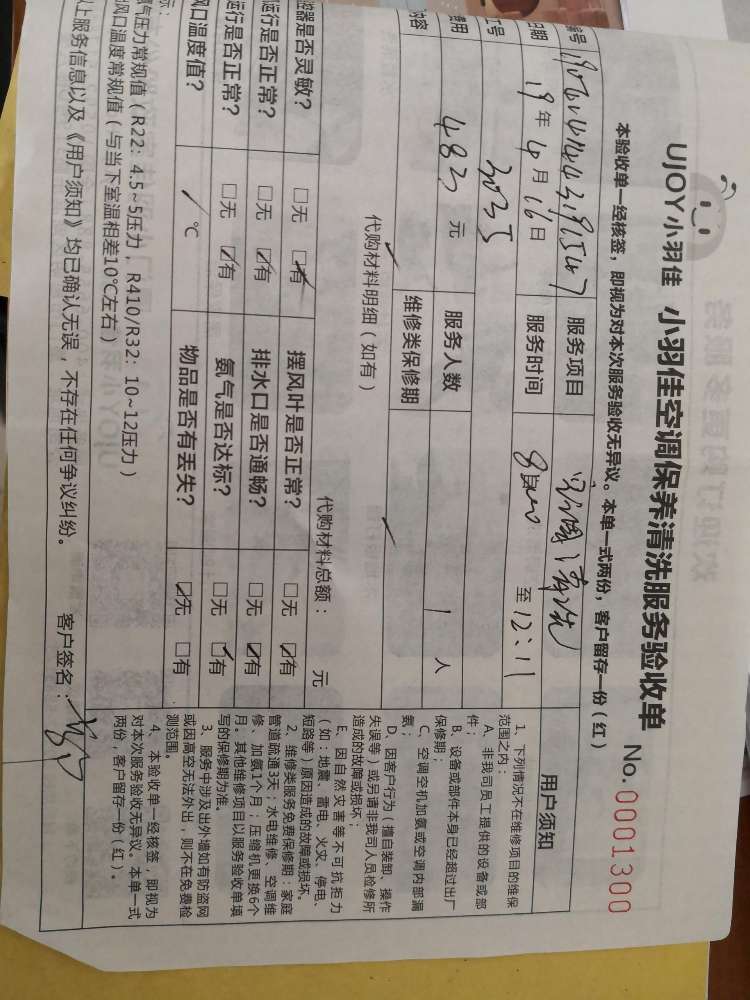 UJOY小羽佳 小羽佳空调保养清洗服务验收单 No.0001300
本验收单一经核签，即视为对本次服务验收无异议。本单一式两份，客户留存一份（红）
编号
服务项目
日期 19年4月16日 服务时间 至12:11
工号 3035
费用 483 元 服务人数 1 人
内容 维修类保修期
代购材料明细（如有）
代购材料总额： 元
是否灵敏？ □无 ☑有 摆风叶是否正常？ □无 ☑有
运行是否正常？ □无 ☑有 排水口是否通畅？ □无 ☑有
运行是否正常？ □无 ☑有 氨气是否达标？ □无 ☑有
风口温度值？ / ℃ 物品是否有丢失？ ☑无 □有
气压力常规值（R22：4.5~5压力，R410/R32：10~12压力）
风口温度常规值（与当下室温相差10℃左右）
以上服务信息以及《用户须知》均已确认无误，不存在任何争议纠纷。 客户签名：
用户须知
1、下列情况不在维修项目的维保
范围之内：
A、非我司员工提供的设备或部
件；
B、设备或部件本身已经超过出厂
保修期；
C、空调空机加氨或空调外部漏
氨；
D、因客户行为（擅自装卸、操作
失误等）或另请非我司人员检修所
造成的故障或损坏；
E、因自然灾害等不可抗拒力
（如：地震、雷电、火灾、停电、
短路等）原因造成的故障或损坏。
2、维修类服务免费保修期：家庭
管道疏通3天；水电维修、空调维
修、加氨1个月；压缩机更换6个
月。其他维修项目以服务验收单填
写的保修期为准。
3、服务中涉及出外墙如有防盗网
或因高空无法外出，则不在免费检
测范围。
4、本验收单一经核签，即视为
对本次服务验收无异议。本单一式
两份，客户留存一份（红）。